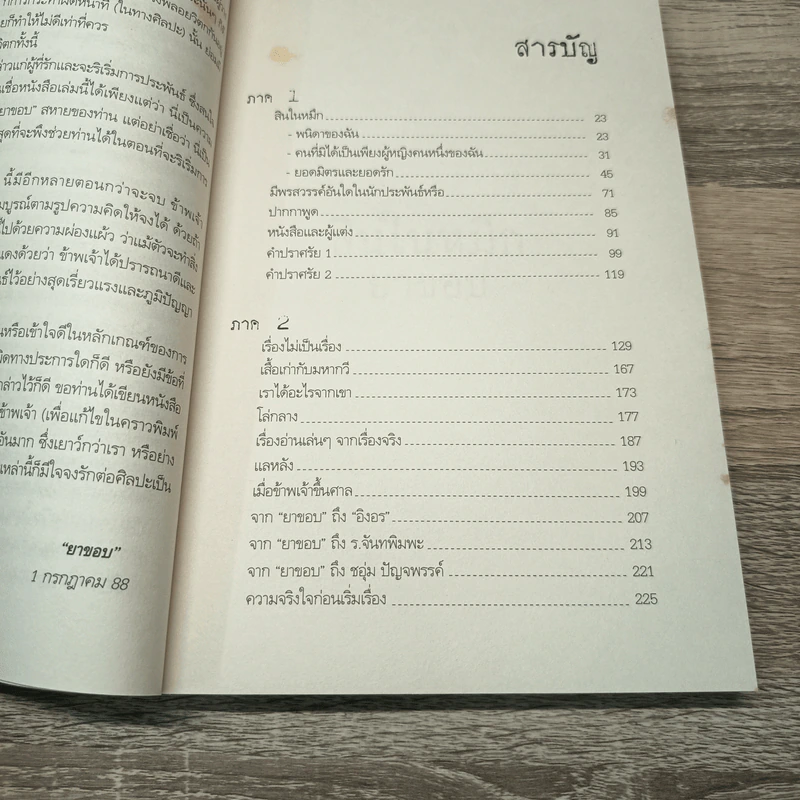 การกระทำผิดหน้าที่ (ในทางศิลปะ) นั้น
ก็ทำให้ไม่ดีเท่าที่ควร
ทั้งนี้
แก่ผู้ที่รักและจะริเริ่มการประพันธ์ ซึ่งสนใจ
เชื่อหนังสือเล่มนี้ได้เพียงแต่ว่า นี่เป็นความ
ยาขอบ" สหายของท่าน แต่อย่าเชื่อว่า นี่เป็น
สุดที่จะพึงช่วยท่านได้ในตอนที่จะริเริ่มการ
นี้มีอีกหลายตอนกว่าจะจบ ข้าพเจ้า
บูรณ์ตามรูปความคิดให้จงได้ ด้วยถ้า
ไปด้วยความผ่องแผ้ว ว่าแม้ตัวจะทำสิ่ง
แดงด้วยว่า ข้าพเจ้าได้ปรารถนาดีและ
ไว้อย่างสุดเรี่ยวแรงและภูมิปัญญา
หรือเข้าใจดีในหลักเกณฑ์ของการ
ผิดทางประการใดก็ดี หรือยังมีข้อที่
กล่าวไว้ก็ดี ขอท่านได้เขียนหนังสือ
ข้าพเจ้า (เพื่อแก้ไขในคราวพิมพ์
อันมาก ซึ่งเยาว์กว่าเรา หรืออย่าง
เหล่านี้ก็มีใจจงรักต่อศิลปะเป็น
"ยาขอบ"
1 กรกฎาคม 88
สารบัญ
ภาค 1
สินในหมึก 23
- พนิดาของฉัน 23
- คนที่มิได้เป็นเพียงผู้หญิงคนหนึ่งของฉัน 31
- ยอดมิตรและยอดรัก 45
มีพรสวรรค์อันใดในนักประพันธ์หรือ 71
ปากกาพูด 85
หนังสือและผู้แต่ง 91
คำปราศรัย 1 99
คำปราศรัย 2 119
ภาค 2
เรื่องไม่เป็นเรื่อง 129
เสื้อเก่ากับมหากวี 167
เราได้อะไรจากเขา 173
โล่กลาง 177
เรื่องอ่านเล่นๆ จากเรื่องจริง 187
แลหลัง 193
เมื่อข้าพเจ้าขึ้นศาล 199
จาก "ยาขอบ" ถึง "อิงอร" 207
จาก "ยาขอบ" ถึง ร.จันทพิมพะ 213
จาก "ยาขอบ" ถึง ชอุ่ม ปัญจพรรค์ 221
ความจริงใจก่อนเริ่มเรื่อง 225